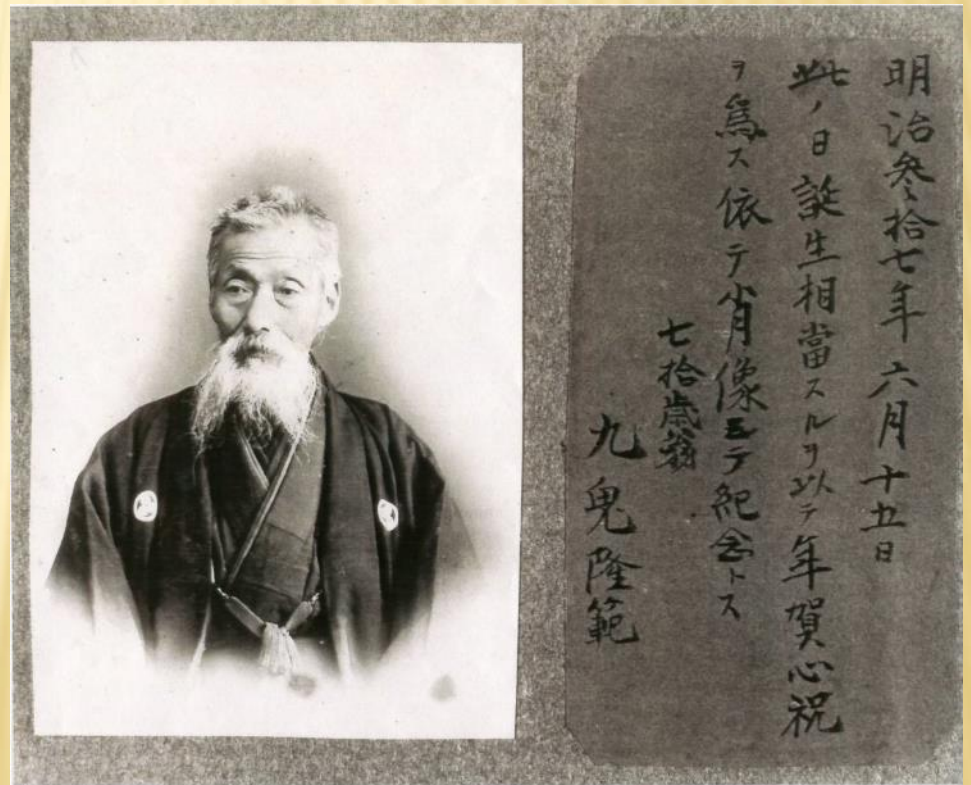 明治参拾七年六月十五日
此ノ日誕生相當スルヲ以テ年賀心祝
ヲ為ス依テ肖像ヲ紀念トス
七拾歳翁
九鬼隆範